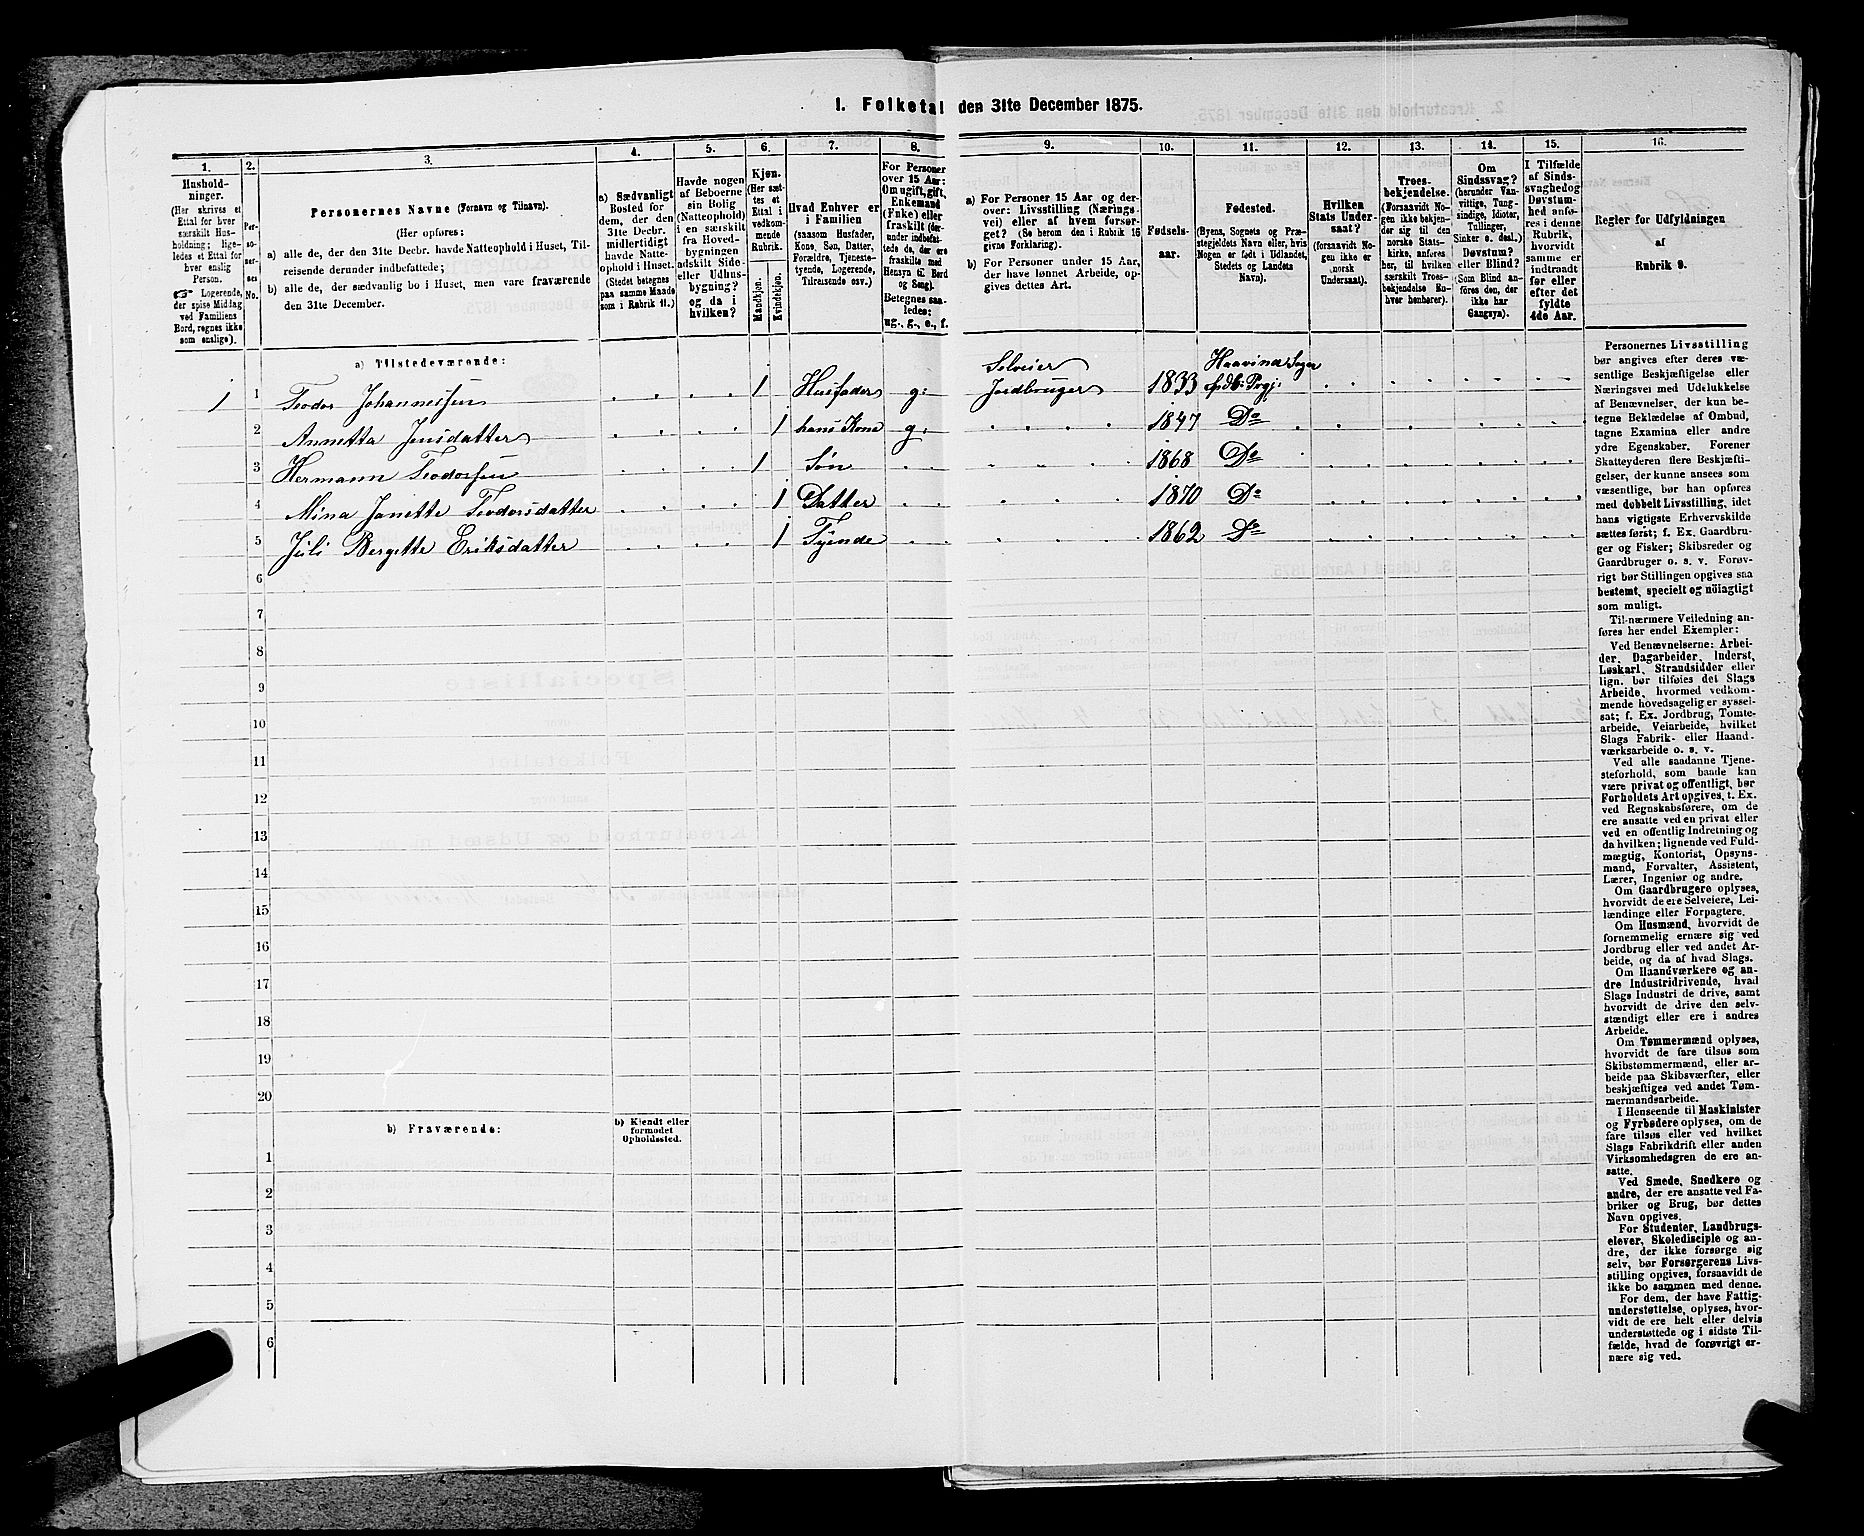 I. Folketal den 31te December 1875.
1. 2. 3. 4. 5. 6. 7. 8. 9. 10. 11. 12. 13. 14. 15. 16.
Hushold-
ninger.
(Her skrives et
Ettal for hver
særskilt Hus-
holdning; lige-
ledes et Ettal for
hver enslig
Person.
☞ Logerende,
der spise Middag
ved Familiens
Bord, regnes ikke
som enslige).
Per-
so-
ner-
nes
No.
Personernes Navne (Fornavn og Tilnavn).
(Her opføres:
a) alle de, der den 31te Decbr. havde Natteophold i Huset, Til-
reisende derunder indbefattede;
b) alle de, der sædvanlig bo i Huset, men vare fraværende
den 31te December.
a) Sædvanligt
Bosted for
dem, der den
31te Decbr.
midlertidigt
havde Natte-
ophold i Huset.
(Stedet betegnes
paa samme Maade
som i Rubrik 11.)
Havde nogen
af Beboerne
sin Bolig
(Natteophold)
i en særskilt
fra Hoved-
bygningen
adskilt Side-
eller Udhus-
bygning?
og da i
hvilken?
Kjøn.
(Her sæt-
tes et
Ettal i
vedkom-
mende
Rubrik.
Mandkjøn.
Kvindekjøn.
Hvad Enhver er
i Familien
(saasom Husfader,
Kone, Søn, Datter,
Forældre, Tjeneste-
tyende, Logerende,
Tilreisende osv.)
For Personer
over 15 Aar:
Om ugift, gift,
Enkemand
(Enke) eller
fraskilt (der-
under indbefat-
tede de, der ere
fraskilte med
Hensyn til Bord
og Seng).
Betegnes saa-
ledes:
ug., g., e., f.
a) For Personer 15 Aar og der-
over: Livsstilling (Nærings-
vei) eller af hvem forsør-
get? (Se herom den i Rubrik 16
givne Forklaring).
b) For Personer under 15 Aar,
der have lønnet Arbeide, op-
gives dettes Art.
Fødsels-
aar.
Fødested.
(Byens, Sognets og Præ-
stegjeldets Navn eller, hvis
Nogen er født i Udlandet,
Stedets og Landets
Navn).
Hvilken
Stats Under-
saat?
(forsaavidt No-
gen ikke er
norsk
Undersaat).
Troes-
bekjendelse.
(Forsaavidt No-
gen ikke bekjen-
der sig til den
norske Stats-
kirke, anføres
her, til hvilken
særskilt Troes-
bekjendelse En-
hver henhører).
Om
Sindssvag?
(herunder Van-
vittige, Tung-
sindige, Idioter,
Tullinger,
Sinker o. desl.)
Døvstum?
eller Blind?
(Som Blind an-
føres den, der
ikke har
Gangsyn).
I Tilfælde
af Sinds-
svaghed og
Døvstum-
hed anfø-
res i denne
Rubrik,
hvorvidt
samme er
indtraadt
før eller
efter det
fyldte
4de Aar.
Regler for Udfyldningen
af
Rubrik 9.
a) Tilstedeværende:
1 1 Teodor Johannessen 1 Husfader g. Selveier Jordbruger 1833
2 Annetta Jensdatter 1 hans Kone g. 1847 Do
3 Hermann Teodorsen 1 Søn 1868 Do
4 Mina Janette Teodorsdatter 1 Datter 1870 Do
5 Juli Bergette Eriksdatter 1 Tyende 1862 Do
6
7
8
9
10
11
12
13
14
15
16
17
18
19
20
b) Fraværende:
b) Kjendt eller
formodet
Opholdssted.
1
2
3
4
5
6
Personernes Livsstilling
bør angives efter deres væ-
sentlige Beskjæftigelse eller
Næringsvei med Udelukkelse
af Benævnelser, der kun be-
tegne Beklædelse af Ombud,
tagne Examina eller andre
ydre Egenskaber. Forener
Skatteyderen flere Beskjæfti-
gelser, der kunne ansees som
væsentlige, bør han opføres
med dobbelt Livsstilling, idet
hans vigtigste Erhvervskilde
sættes først; f. Ex. Gaardbru-
ger og Fisker; Skibsreder og
Gaardbruger o. s. v. Forøv-
rigt bør Stillingen opgives saa
bestemt, specielt og nöiagtigt
som muligt.
Til nærmere Veiledning an-
føres her endel Exempler:
Ved Benævnelserne: Arbei-
der, Dagarbeider, Inderst,
Løskarl, Strandsidder eller
lign. bør tilføies det Slags
Arbeide, hvormed vedkom-
mende hovedsagelig er syssel-
sat; f. Ex. Jordbrug, Tomte-
arbeide, Veiarbeide, hvilket
Slags Fabrik- eller Haand-
værksarbeide o. s. v.
Ved alle saadanne Tjene-
steforhold, som baade kan
være privat og offentligt, bør
Forholdets Art opgives, t. Ex.
ved Regnskabsførere, om de
ere ansatte ved en privat eller
ved en offentlig Indretning og
da hvilken; lignende ved Fuld-
mægtig, Kontorist, Opsyns-
mand, Forvalter, Assistent,
Lærer, Ingeniør og andre.
Om Gaardbrugere oplyses,
hvorvidt de ere Selveiere, Lei-
lændinge eller Forpagtere.
Om Husmænd, hvorvidt de
fornemmelig ernære sig ved
Jordbrug eller ved andet Ar-
beide, og da af hvad Slags.
Om Haandværkere og an-
dre Industridrivende, hvad
Slags Industri de drive, samt
hvorvidt de drive den selv-
stændigt eller ere i andres
Arbeide.
Om Tømmermænd oplyses,
hvorvidt de fare tilsøs som
Skibstømmermænd, eller ar-
beide paa Skibsværfter, eller
beskjæftiges ved andet Tøm-
mermandsarbeide.
I Henseende til Maskinister
og Fyrbødere oplyses, om de
fare tilsøs eller ved hvilket
Slags Fabrikdrift eller anden
Virksomhedsgren de ere an-
satte.
Ved Smede, Snedkere og
andre, der ere ansatte ved Fa-
briker og Brug, bør dettes
Navn opgives.
For Studenter, Landbrugs-
elever, Skoledisciple og an-
dre, der ikke forsørge sig
selv, bør Forsørgerens Livs-
stilling opgives, forsaavidt de
ikke bo sammen med denne.
For dem, der have Fattig-
understøttelse, oplyses, hvor-
vidt de ere helt eller delvis
understøttede og i sidste Til-
fælde, hvad de forøvrigt er-
nære sig ved.